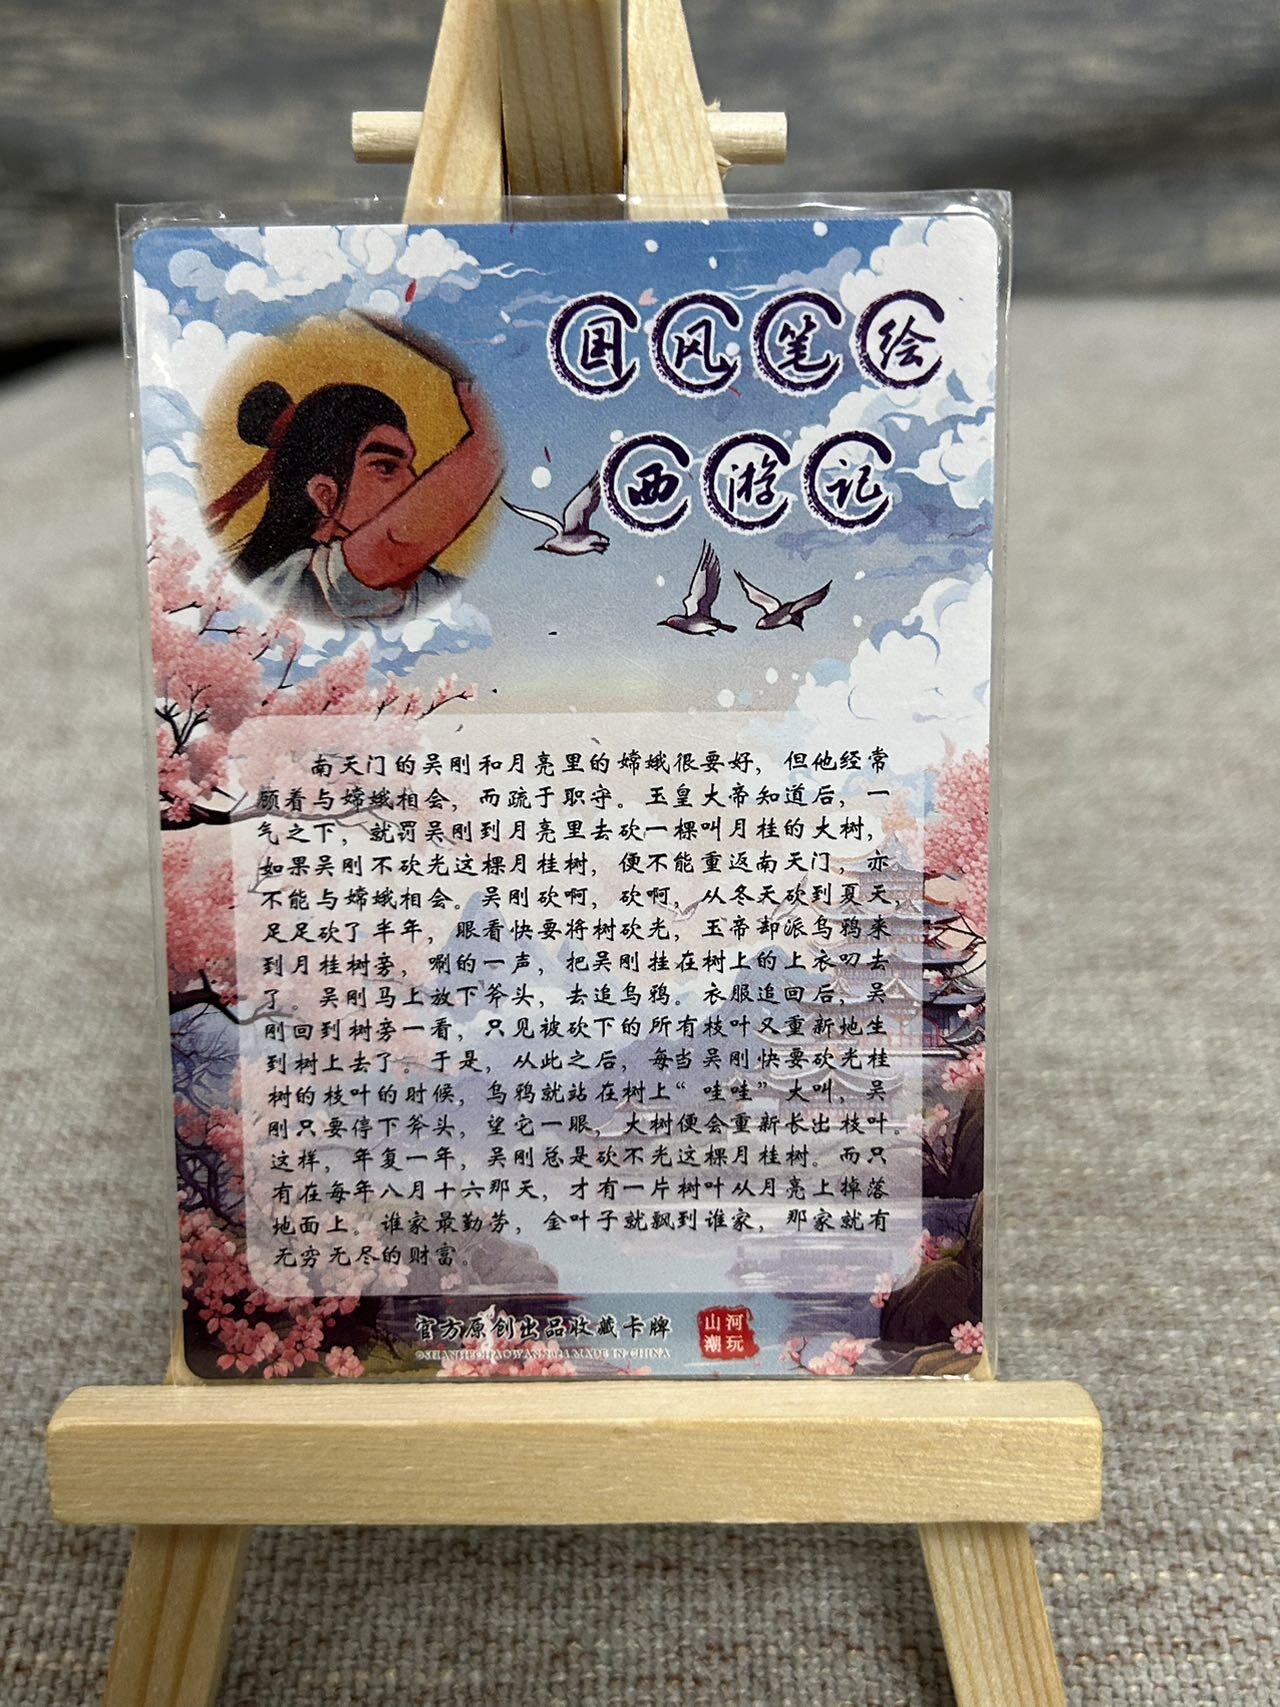 国风笔绘
西游记
南天门的吴刚和月亮里的嫦娥很要好，但他经常
顾着与嫦娥相会，而疏于职守。玉皇大帝知道后，一
气之下，就罚吴刚到月亮里去砍一棵叫月桂的大树，
如果吴刚不砍光这棵月桂树，便不能重返南天门，亦
不能与嫦娥相会。吴刚砍啊，砍啊，从冬天砍到夏天，
足足砍了半年，眼看快要将树砍光，玉帝却派乌鸦来
到月桂树旁，唰的一声，把吴刚挂在树上的上衣叨去
了。吴刚马上放下斧头，去追乌鸦。衣服追回后，吴
刚回到树旁一看，只见被砍下的所有枝叶又重新地生
到树上去了。于是，从此之后，每当吴刚快要砍光桂
树的枝叶的时候，乌鸦就站在树上“哇哇”大叫，吴
刚只要停下斧头，望它一眼，大树便会重新长出枝叶。
这样，年复一年，吴刚总是砍不光这棵月桂树。而只
有在每年八月十六那天，才有一片树叶从月亮上掉落
地面上。谁家最勤劳，金叶子就飘到谁家，那家就有
无穷无尽的财富。
官方原创出品收藏卡牌
©SHANHECHAOWAN2024 MADE IN CHINA
山河
潮玩